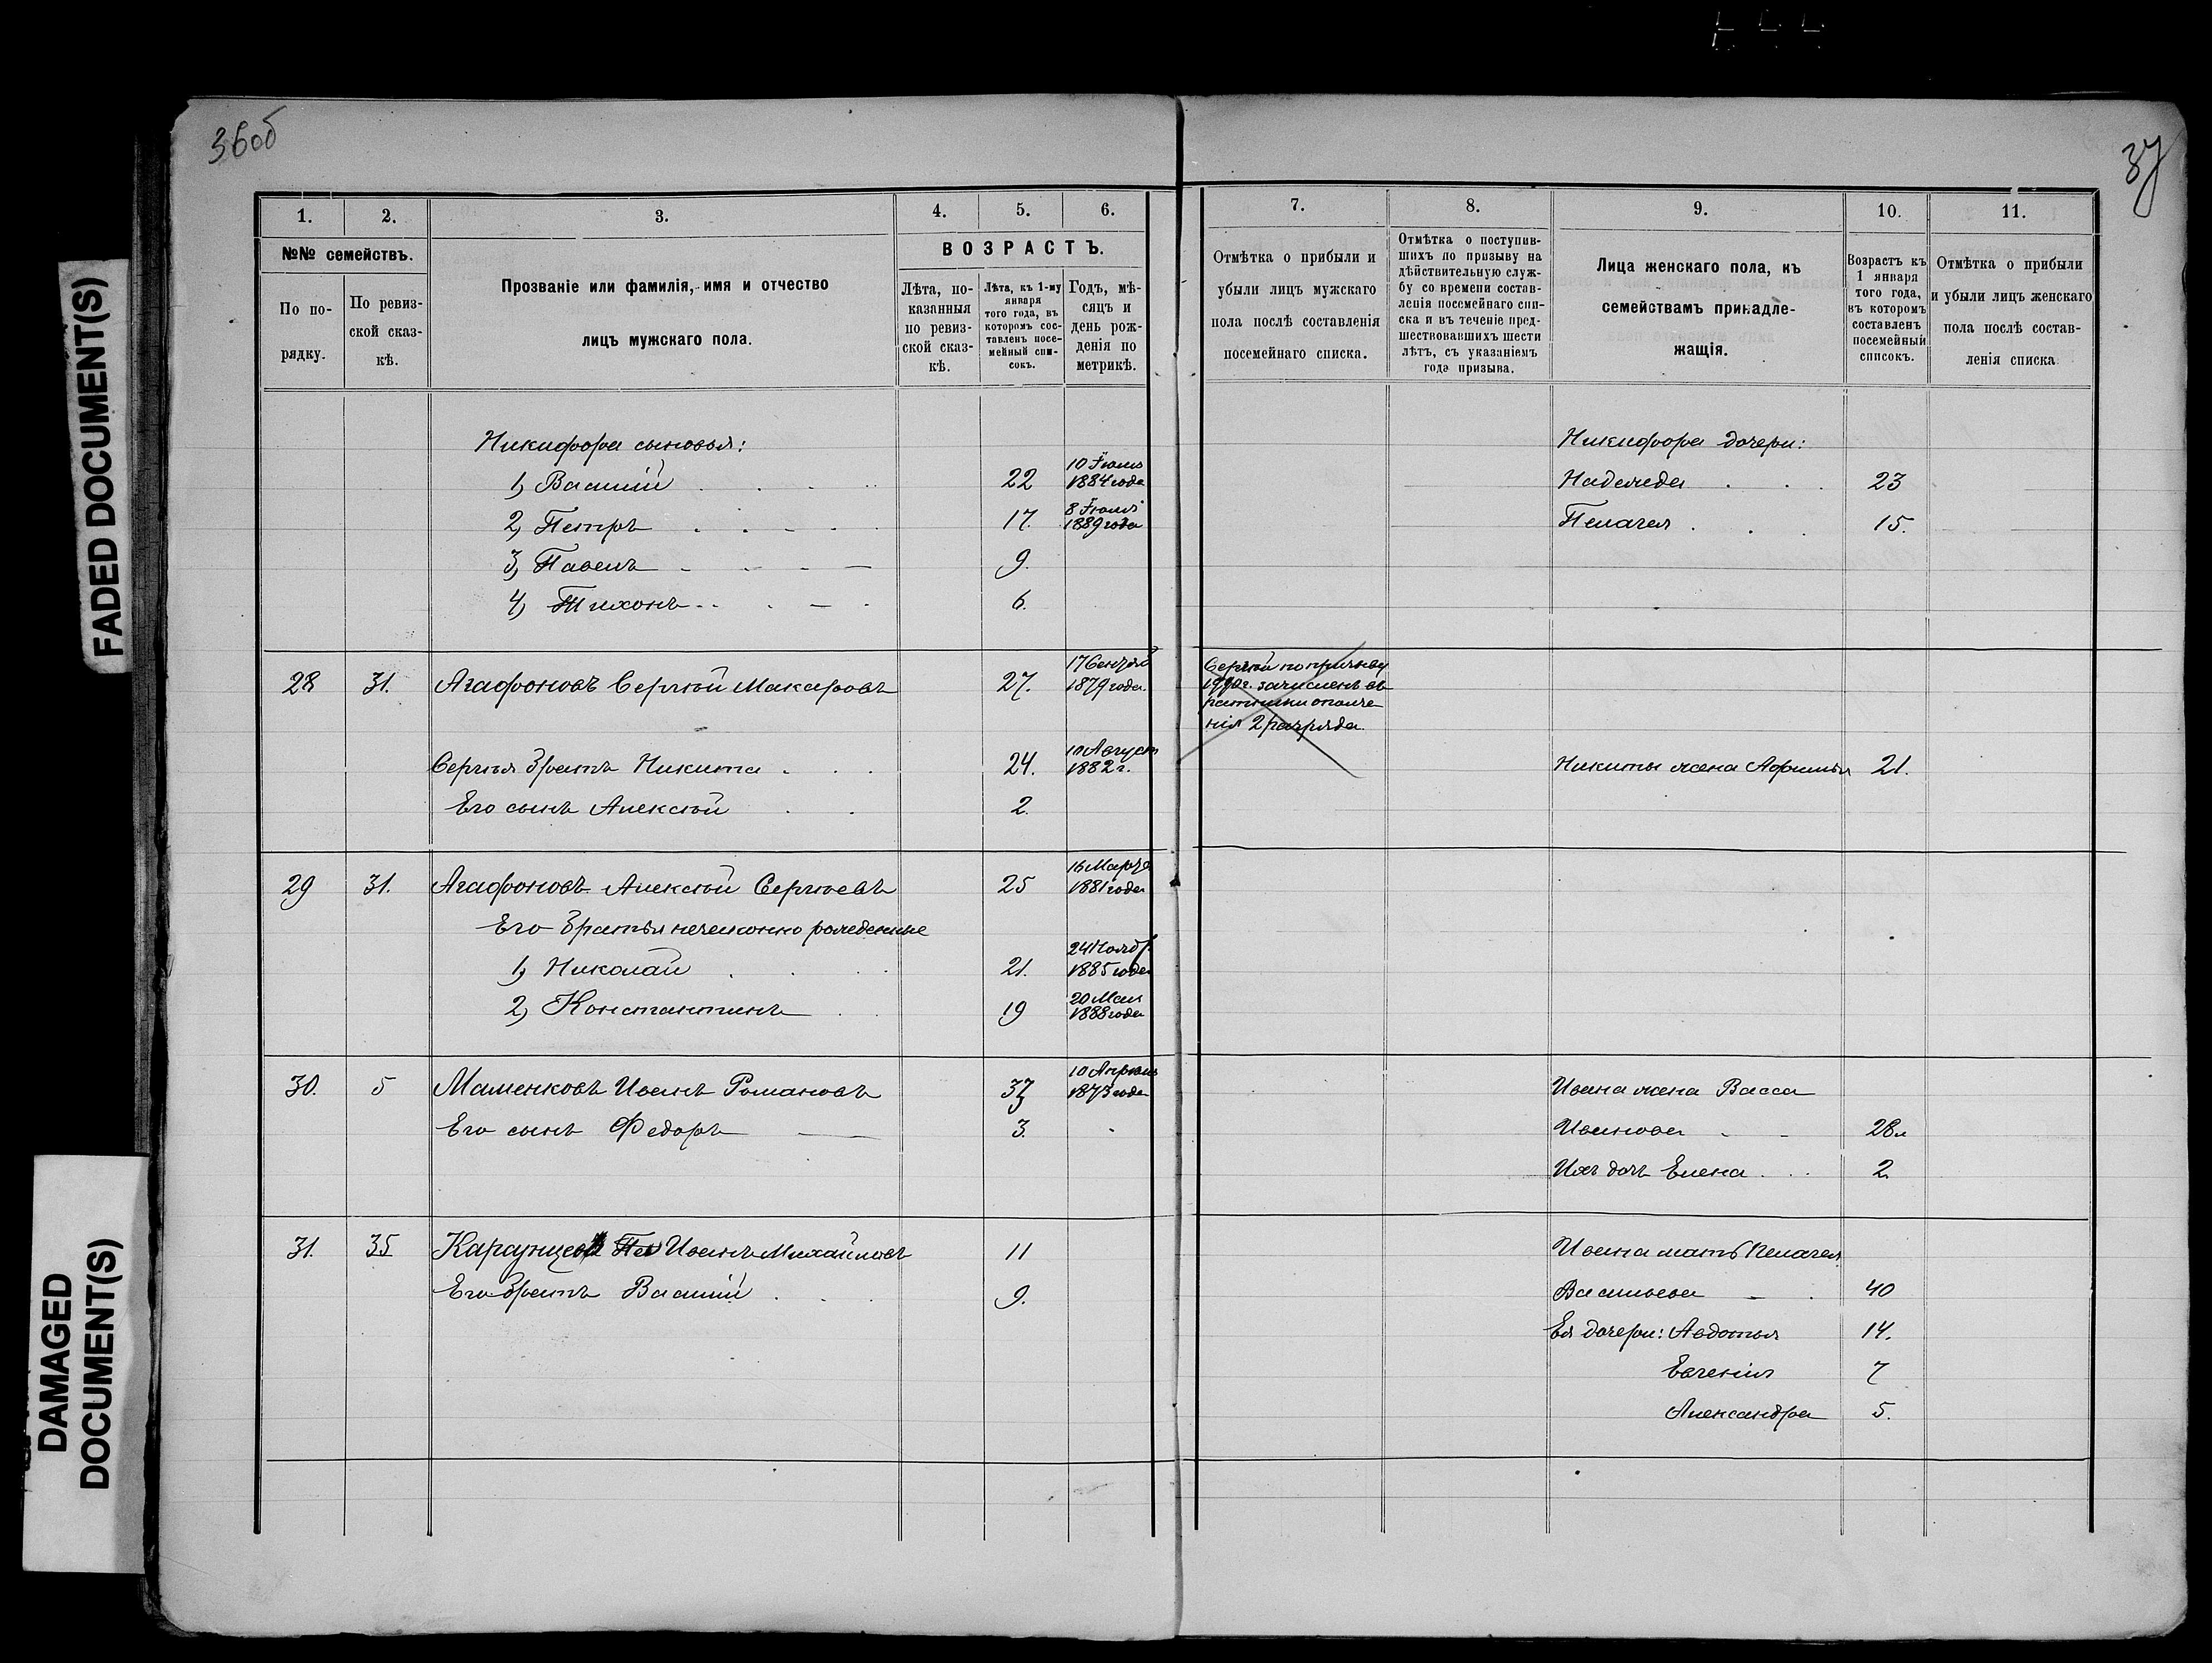 36об
37
FADED DOCUMENT(S)
DAMAGED
DOCUMENT(S)
1. 2. 3. 4. 5. 6. 7. 8. 9. 10. 11.
№№ семействъ.
По по-
рядку.
По ревиз-
ской сказ-
кѣ.
Прозваніе или фамилія, имя и отчество
лицъ мужскаго пола.
ВОЗРАСТЪ.
Лѣта, по-
казанныя
по ревиз-
ской сказ-
кѣ.
Лѣта, къ 1-му
января
того года, въ
которомъ сос-
тавленъ посе-
мейный спи-
сокъ.
Годъ, мѣ-
сяцъ и
день рож-
денія по
метрикѣ.
Отмѣтка о прибыли и
убыли лицъ мужскаго
пола послѣ составленія
посемейнаго списка.
Отмѣтка о поступив-
шихъ по призыву на
дѣйствительную служ-
бу со времени состав-
ленія посемейнаго спи-
ска и въ теченіе пред-
шествовавшихъ шести
лѣтъ, съ указаніемъ
года призыва.
Лица женскаго пола, къ
семействамъ принадле-
жащія.
Возрастъ къ
1 января
того года,
въ которомъ
составленъ
посемейный
списокъ.
Отмѣтка о прибыли
и убыли лицъ женскаго
пола послѣ состав-
ленія списка
Никифора сыновья: Никифора дочери:
10 Іюля
1) Василій 22 1884 года Надежда 23
8 Іюля
2) Петръ 17. 1889 года Пелагея 15.
3) Павелъ 9.
4) Тихонъ 6.
17 Сентяб Сергѣй по призыву
28 31. Агафоновъ Сергѣй Макаровъ 27. 1879 года. зачисленъ въ
ратники ополче-
нія 2 разряда.
10 Август
Сергѣя братъ Никита 24. 1882 г. Никиты жена Афимья 21.
Его сынъ Алексѣй 2.
16 Марта
29 31. Агафоновъ Алексѣй Сергѣевъ 25 1881 года
Его братья незаконно рожденные
24 Нояб.
1) Николай 21. 1885 года
20 Мая
2) Константинъ 19 1888 года
10 Апрѣля
30. 5 Маменковъ Иванъ Романовъ 37 1873 года Ивана жена Васса
Его сынъ Федоръ 3. Иванова 28
Ихъ дочь Елена 2
31. 35 Иванъ Михайловъ 11 Ивана мать Пелагея
Его братъ Василій 9. Васильева 40
Ея дочери: Авдотья 14.
Евгенія 7
Александра 5.